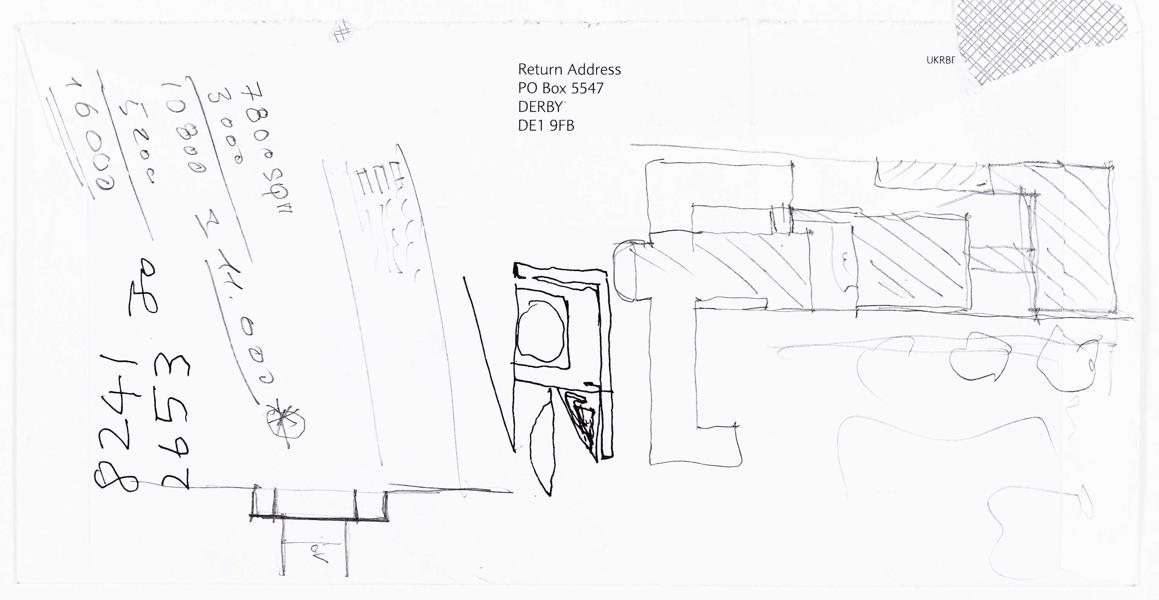 Return Address
PO Box 5547
DERBY
DE1 9FB
UKRBF
7800 SQM
3000
10800
5200
16000
14.000
8241
2653